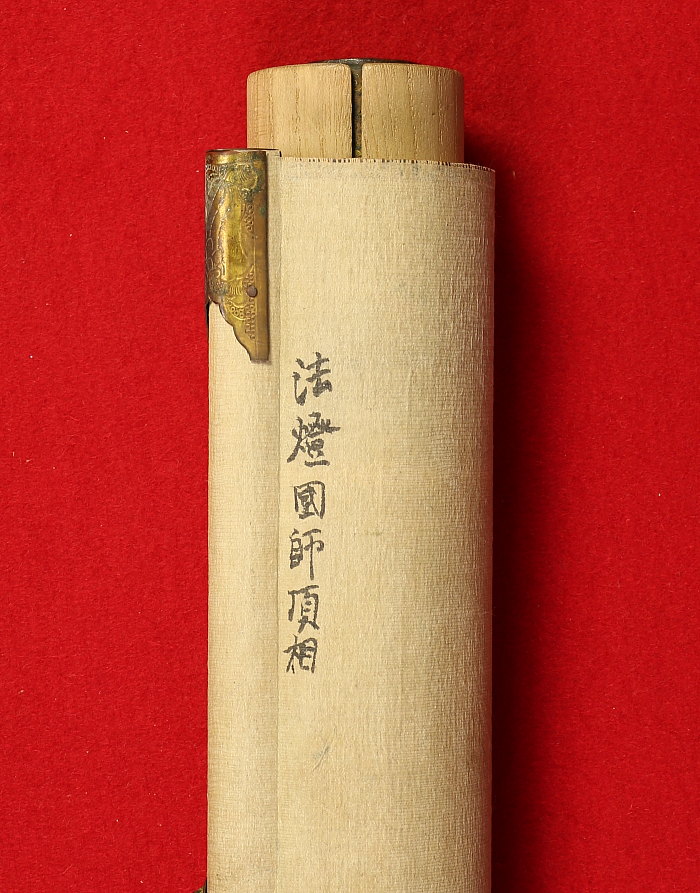 法燈國師頂相